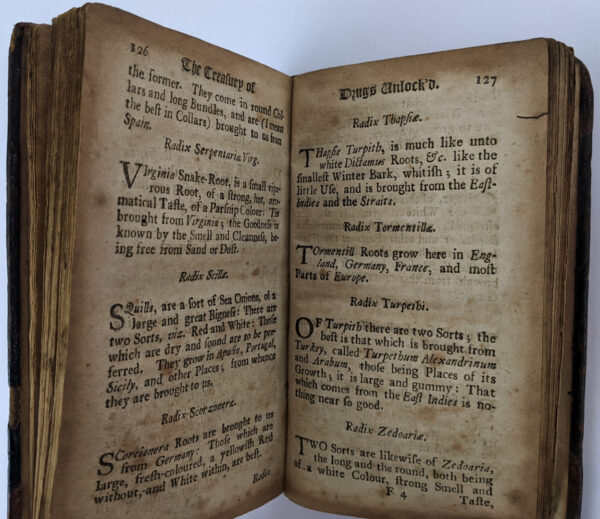 126
The Treasury of
the former. They come in round Col-
lars and long Bundles, and are (I mean
the best in Collars) brought to us from
Spain.
Radix Serpentariæ Virg.
VIrginia Snake-Root, is a small vipe-
rous Root, of a strong, hot, aro-
matical Taste, of a Parsnip Colour: 'Tis
brought from Virginia; the Goodness is
known by the Smell and Cleanness, be-
ing free from Sand or Dust.
Radix Scillæ.
SQuills, are a sort of Sea Onions, of a
large and great Bigness: There are
two Sorts, viz. Red and White: Those
which are dry and sound are to be pre-
ferred. They grow in Apulia, Portugal,
Sicily, and other Places; from whence
they are brought to us.
Radix Scorzonera.
SCorcionera Roots are brought to us
from Germany: Those which are
large, fresh-coloured, a yellowish Red
without, and White within, are best.
Radix
Drugs Unlock'd.
127
Radix Thapsiæ.
THapsie Turpith, is much like unto
white Dictamus Roots, &c. like the
smallest Winter Bark, whitish; it is of
little Use, and is brought from the East-
Indies and the Straits.
Radix Tormentillæ.
TOrmentill Roots grow here in Eng-
land, Germany, France, and most
Parts of Europe.
Radix Turpethi.
OF Turpith there are two Sorts; the
best is that which is brought from
Turkey, called Turpethum Alexandrinum
and Arabum, those being Places of its
Growth; it is large and gummy: That
which comes from the East Indies is no-
thing near so good.
Radix Zedoariæ.
TWO Sorts are likewise of Zedoaria,
the long and the round, both being
of a white Colour, strong Smell and
F 4
Taste,